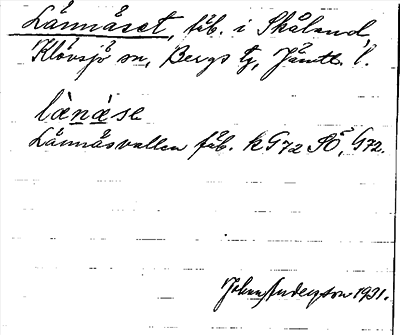 Lännäset, fäb. i Skåland,
Klövsjö sn, Bergs tg, Jämtl. l.
länäse
Lännäsvallen fäb. k G72 SO, G72.
Johan Anderson 1931.